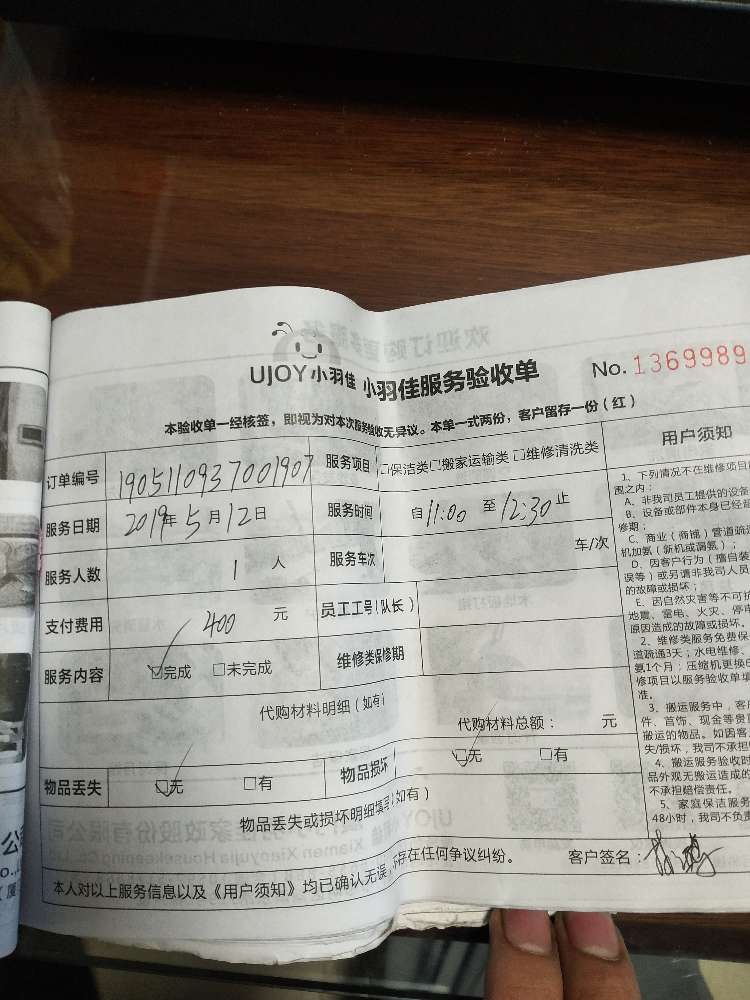 UJOY小羽佳 小羽佳服务验收单
No. 1369989
本验收单一经核签，即视为对本次服务验收无异议。本单一式两份，客户留存一份（红）
订单编号 1905110937001907 服务项目 □保洁类□搬家运输类 □维修清洗类
服务日期 2019年5月12日 服务时间 自11:00 至12:30止
服务人数 1 人 服务车次 车/次
支付费用 400 元 员工工号(队长)
服务内容 ☑完成 □未完成 维修类保修期
代购材料明细（如有）
代购材料总额： 元
物品丢失 ☑无 □有 物品损坏 ☑无 □有
物品丢失或损坏明细填写（如有）
本人对以上服务信息以及《用户须知》均已确认无误，不存在任何争议纠纷。 客户签名：
用户须知
1、下列情况不在维修项目
围之内：
A、非我司员工提供的设备
B、设备或部件本身已经
修期；
C、商业（商铺）管道疏
机加氨（新机或漏氨）；
D、因客户行为（擅自装
误等）或另请非我司人员
的故障或损坏；
E、因自然灾害等不可抗
地震、雷电、火灾、停电
原因造成的故障或损坏。
2、维修类服务免费保
道疏通3天；水电维修、
氨1个月；压缩机更换6
修项目以服务验收单填
准。
3、搬运服务中，客户
件、首饰、现金等贵
搬运的物品。如因客
失/损坏，我司不承担
4、搬运服务验收时
品外观无搬运造成的
不承担赔偿责任。
5、家庭保洁服务
48小时，我司不负责